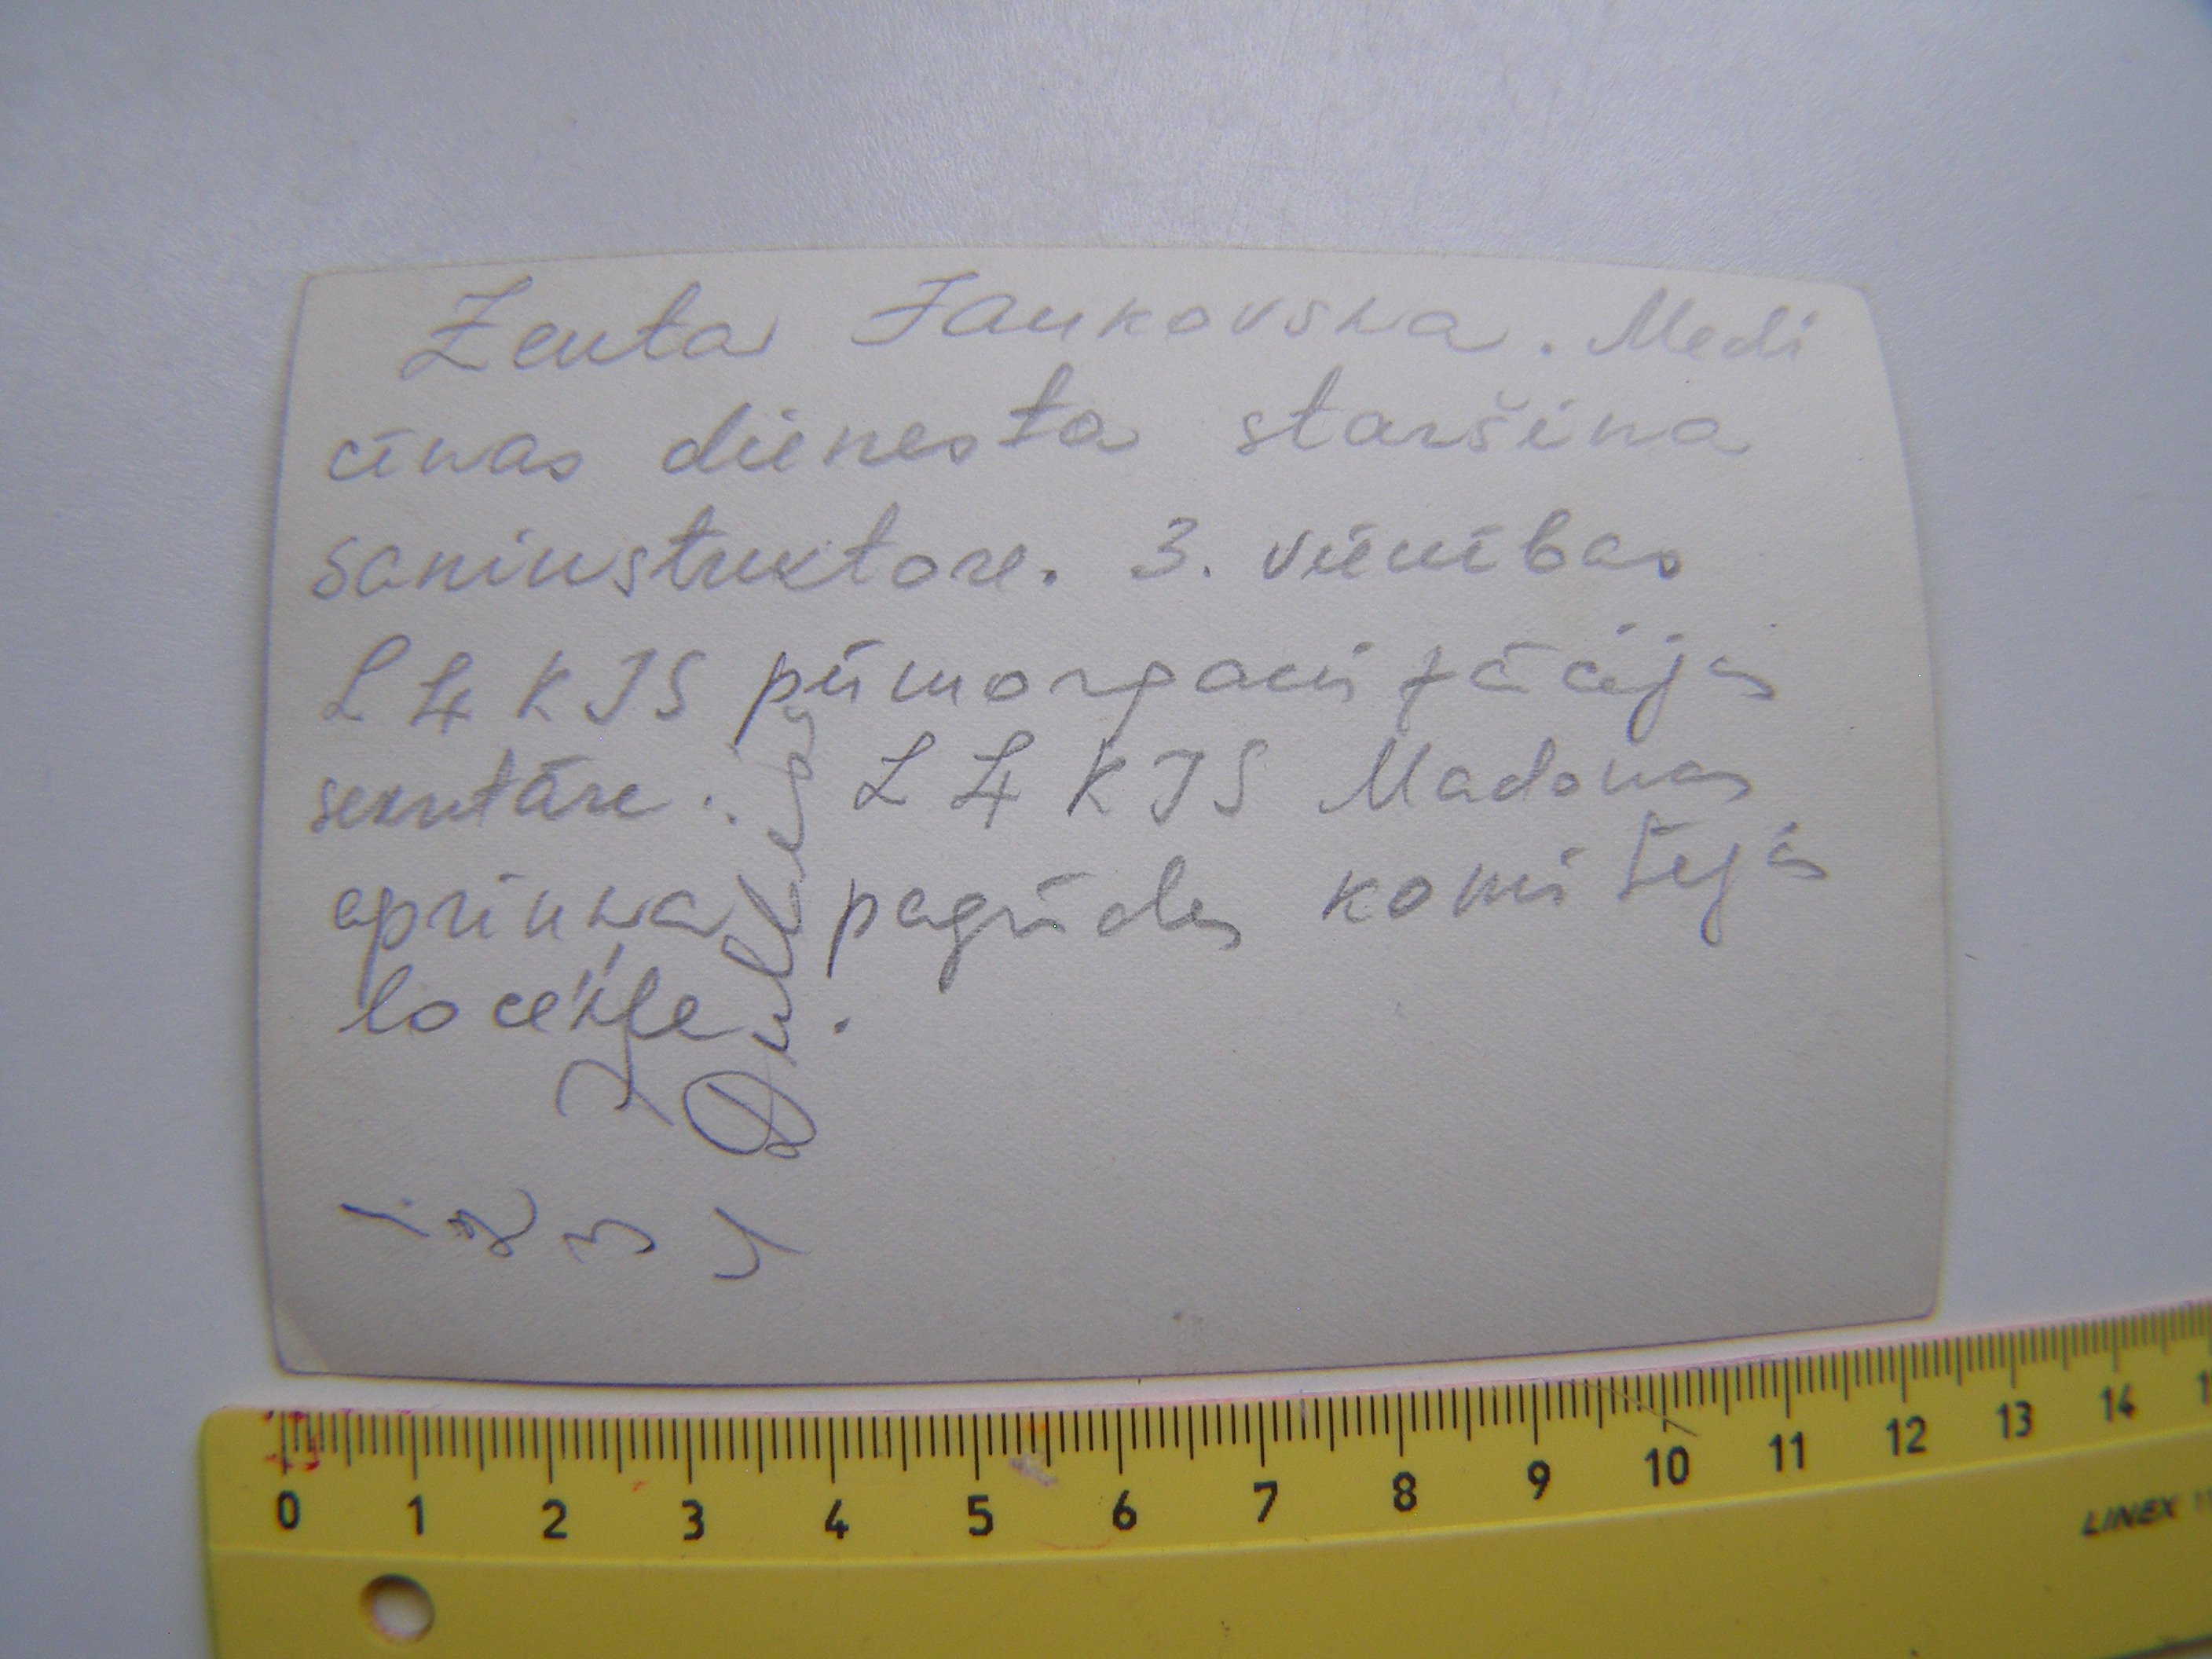 Zenta Jankovska. Medi
cīnas dienesta staršina
saninstruktore. 3. vienības
LĻKJS pirmorganizācijas
sekretāre. LĻKJS Madonas
apriņķa pagrīdes komitejas
locekle.
1 2 3 4
0 1 2 3 4 5 6 7 8 9 10 11 12 13 14
LINEX